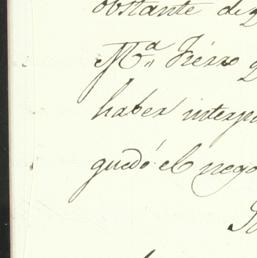 obstante de
M.ª Fierro q
haber interp
quedó el nego